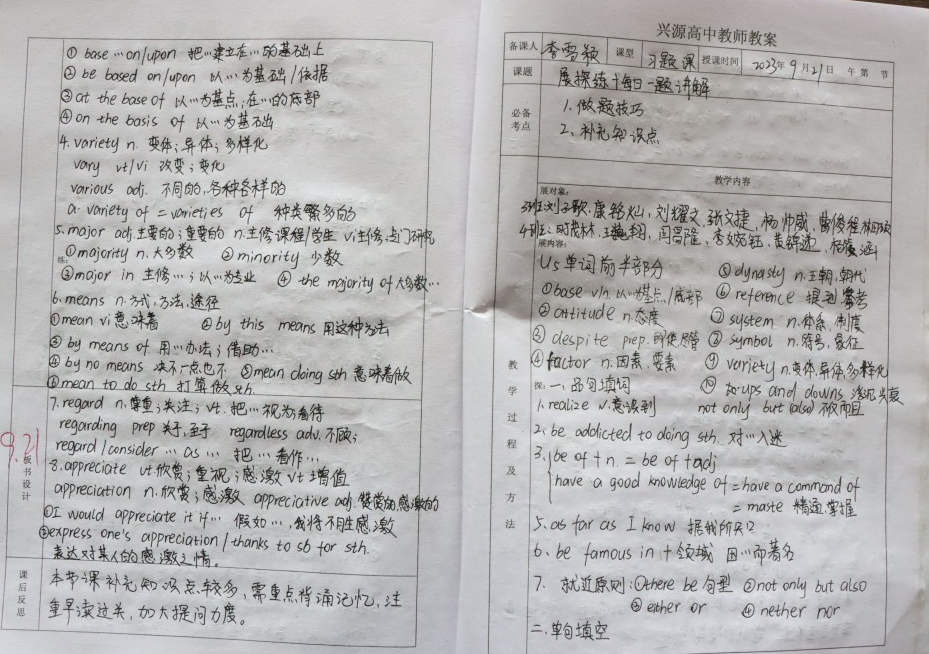 ① base…on/upon 把…建立在…的基础上
② be based on/upon 以…为基础/依据
③ at the base of 以…为基点;在…的底部
④ on the basis of 以…为基础
4. variety n. 变体;异体;多样化
vary vt/vi 改变;变化
various adj. 不同的,各种各样的
a variety of = varieties of 种类繁多的
5. major adj.主要的;重要的 n.主修课程/学生 vi主修,专门研究
练:
① majority n.大多数 ② minority 少数
③ major in 主修…;以…为专业 ④ the majority of 大多数…
6. means n.方式,方法,途径
① mean vi 意味着 ② by this means 用这种方法
③ by means of 用…办法;借助…
④ by no means 决不一点也不 ⑤ mean doing sth 意味着做
⑥ mean to do sth 打算做sth.
9.21
板书设计
7. regard n.尊重;关注;vt.把…视为看待
regarding prep 关于,至于 regardless adv.不顾;
regard/consider … as … 把…看作…
8. appreciate vt欣赏;重视;感激 vt增值
appreciation n.欣赏;感激 appreciative adj.赞赏的感激的
① I would appreciate it if… 假如…,我将不胜感激
② express one's appreciation/thanks to sb for sth.
表达对某人的感激之情。
课后反思
本节课补充知识点较多,需重点背诵记忆,注
重早读过关,加大提问力度。
兴源高中教师教案
备课人 李雪颖 课型 习题课 授课时间 2023年9月21日 午第 节
课题 展探练+每日一题讲解
必备考点
1.做题技巧
2、补充知识点
教学内容
教学过程及方法
展对象:
3班:刘子歌,康铭灿,刘耀文,张文捷,杨帅威,
4班:
展内容:
U5单词前半部分
① base v/n.以…为基点/底部
② attitude n.态度
③ despite prep.即使尽管
④ factor n.因素,要素
⑤ dynasty n.王朝,朝代
⑥ reference 提到 参考
⑦ system n.体系,制度
⑧ symbol n.符号,象征
⑨ variety n.变体异体多样化
⑩ ups and downs 浮沉兴衰
探:一、品句填词
1. realize v.意识到 not only but (also) 不仅而且
2. be addicted to doing sth. 对…入迷
3. be of + n. = be of + adj
have a good knowledge of = have a command of
= maste 精通,掌握
5. as far as I know 据我所知
6. be famous in + 领域 因…而著名
7. 就近原则:① there be 句型 ② not only but also
③ either or ④ nether nor
二、单句填空